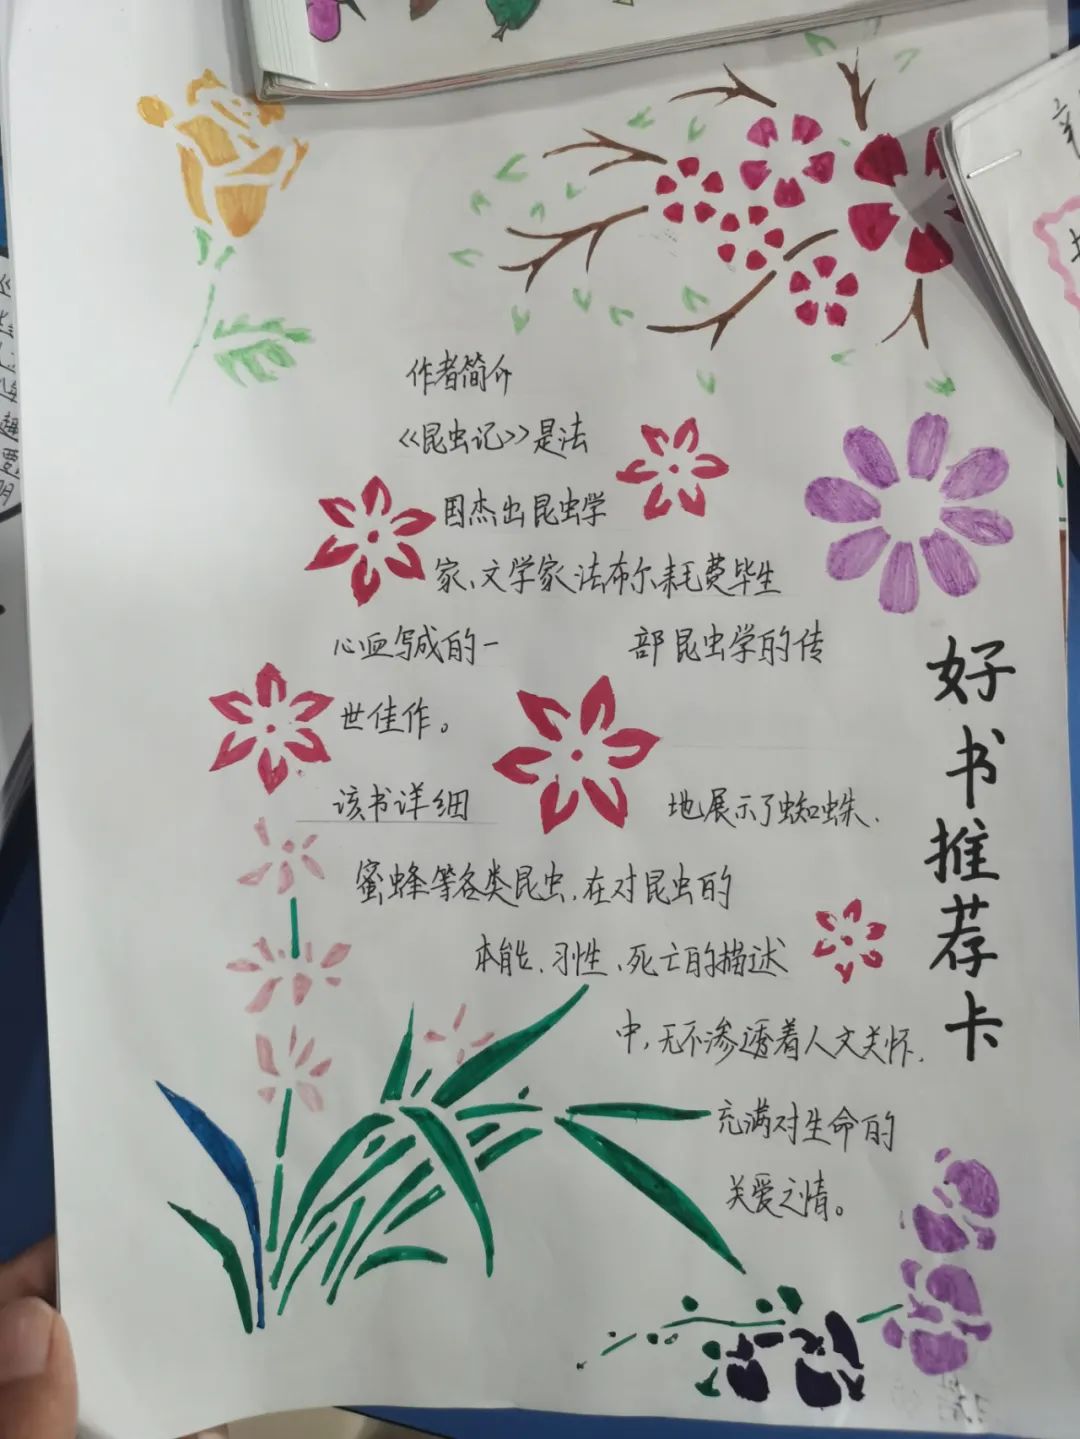 好书推荐卡
作者简介
《昆虫记》是法
国杰出昆虫学
家、文学家法布尔耗费毕生
心血写成的一部昆虫学的传
世佳作。
该书详细地展示了蜘蛛、
蜜蜂等各类昆虫,在对昆虫的
本能、习性、死亡的描述
中,无不渗透着人文关怀,
充满对生命的
关爱之情。